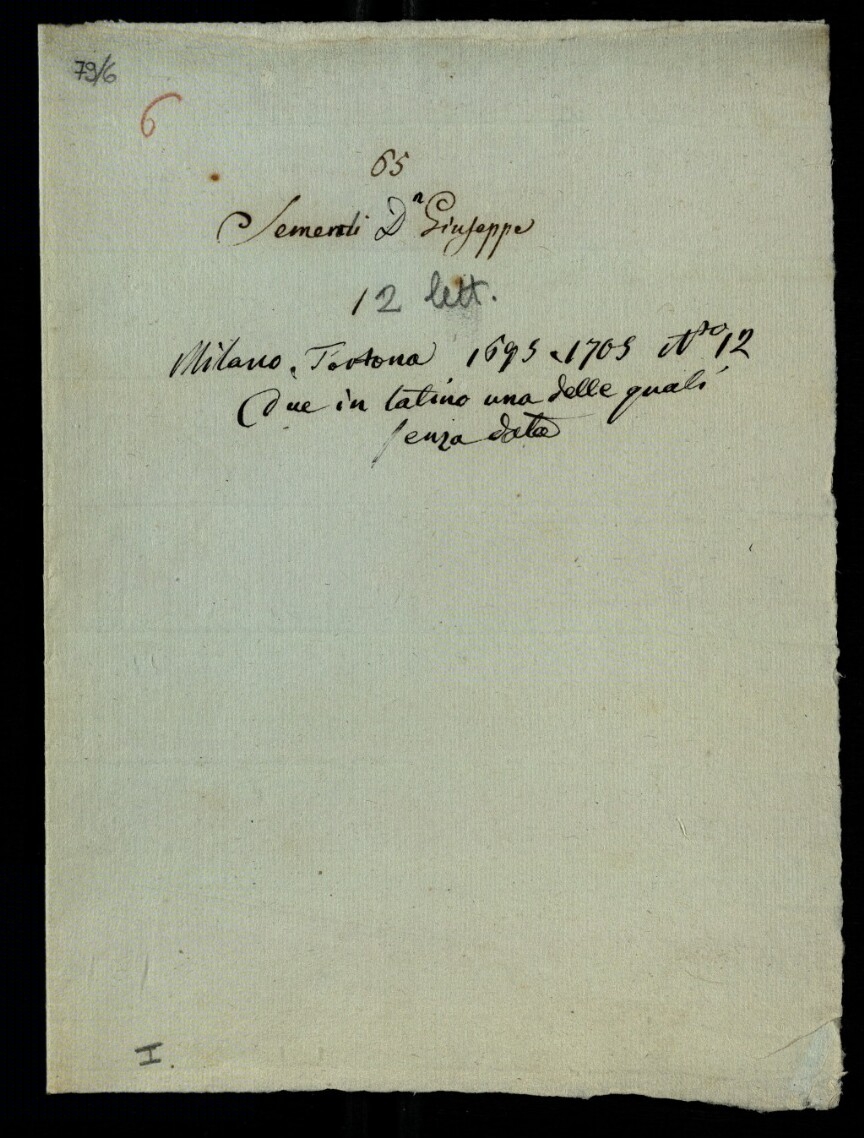 79/6
6
65
Sementi Dn Giuseppe
12 lett.
Milano, Tortona 1695 1705 Nro 12
Due in latino una delle quali
senza data
I